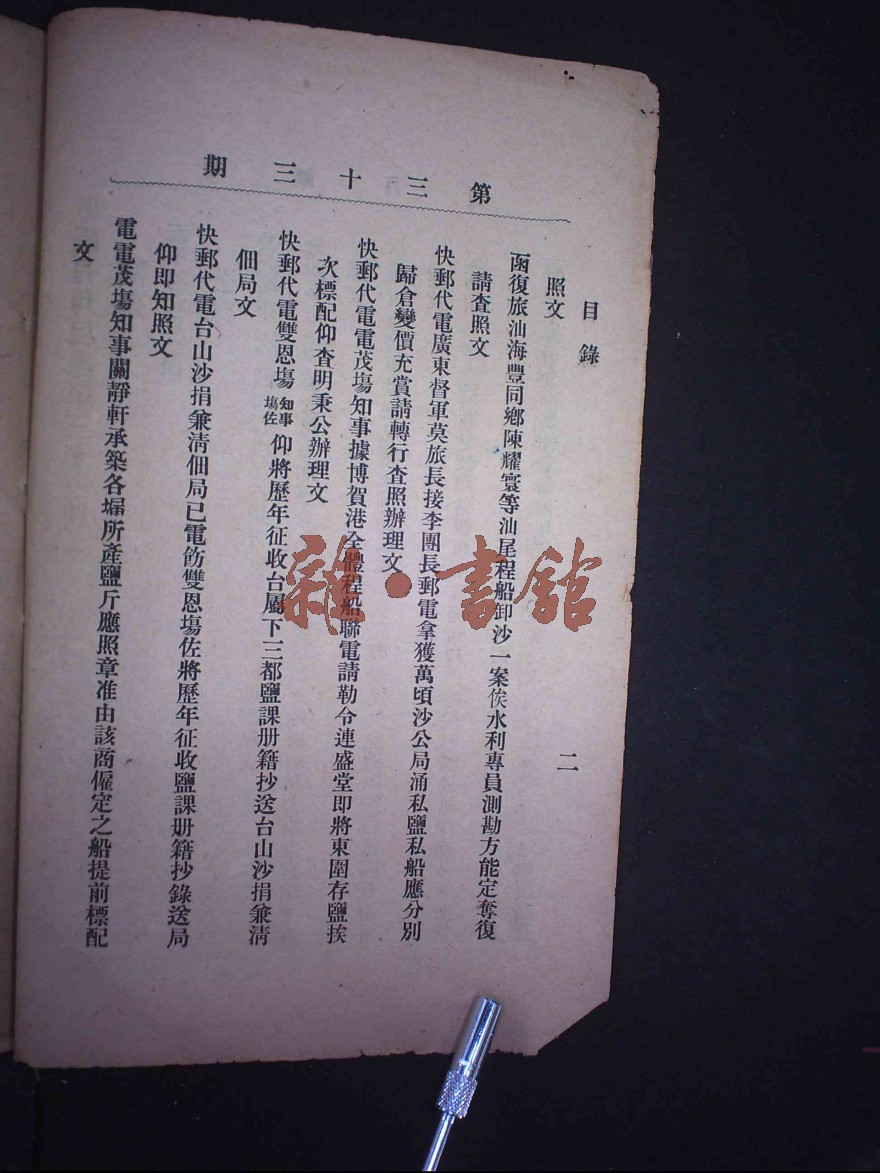 第三十三期
目錄
二
照文
函復旅汕海豐同鄉陳耀寰等汕尾程船卸沙一案俟水利專員測勘方能定奪復
請查照文
快郵代電廣東督軍莫旅長接李團長郵電拿獲萬頃沙公局涌私鹽私船應分別
歸倉變價充賞請轉行查照辦理文
快郵代電電茂塲知事據博賀港全體程船聯電請勒令連盛堂即將東圍存鹽挨
次標配仰查明秉公辦理文
快郵代電雙恩塲知事塲佐仰將歷年征收台屬下三都鹽課册籍抄送台山沙捐兼清
佃局文
快郵代電台山沙捐兼清佃局已電飭雙恩塲佐將歷年征收鹽課册籍抄錄送局
仰即知照文
電電茂塲知事關靜軒承築各塌所產鹽斤應照章准由該商僱定之船提前標配
文
雜·書館